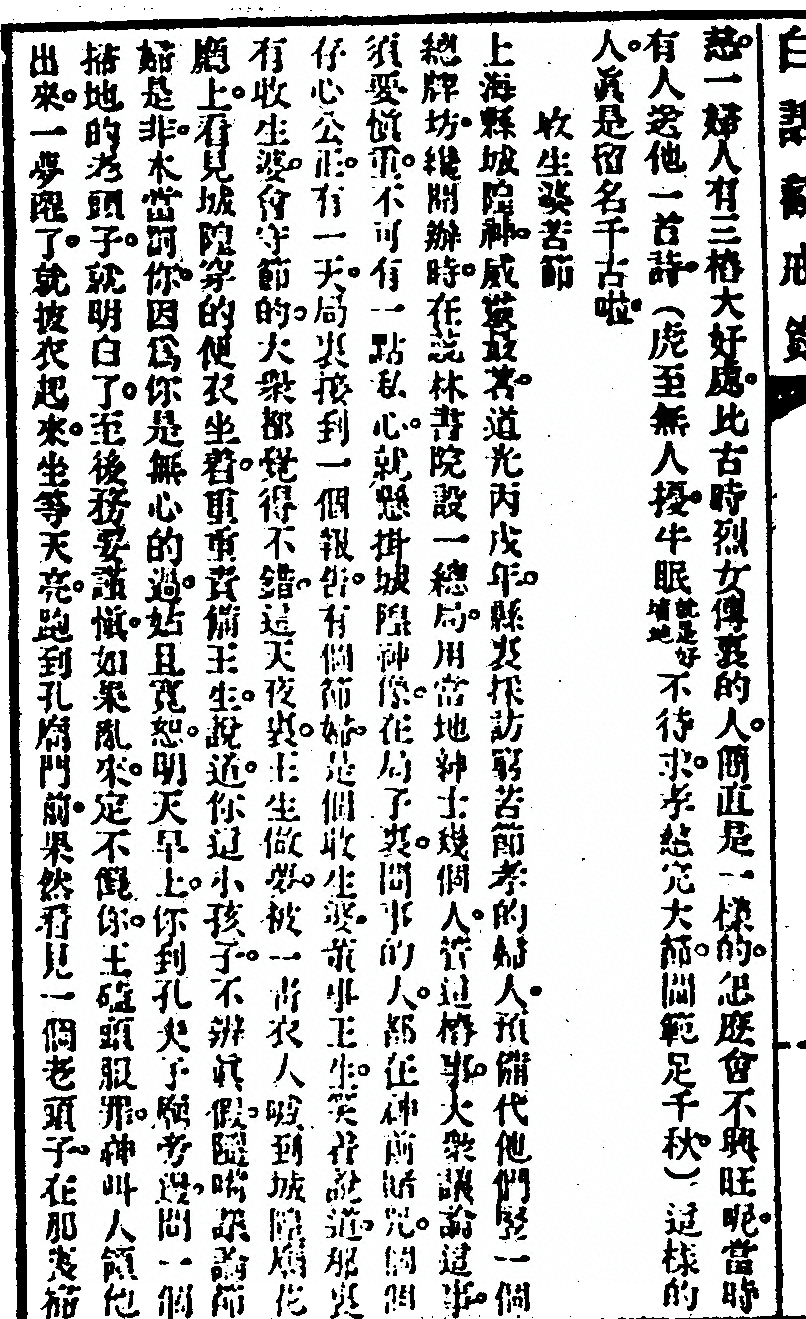 白話勸戒錄
慈。一婦人有三樁大好處。比古時烈女傳裏的人。簡直是一樣的。怎麼會不興旺呢。當時
有人送他一首詩。(虎至無人擾。牛眠就是好墳地不待求。孝慈完大節。閫範足千秋。)這樣的
人。眞是留名千古啦。
收生婆苦節
上海縣城隍神。威靈最著。道光丙戌年。縣裏採訪窮苦節孝的婦人。預備代他們竪一個
總牌坊。纔開辦時。在蕊林書院設一總局。用當地紳士幾個人。管這樁事。大衆議論這事。
須要愼重。不可有一點私心。就懸掛城隍神像在局子裏。問事的人。都在神前賭咒。個個
存心公正。有一天。局裏接到一個報告。有個節婦。是個收生婆。董事王生。笑着說道。那裏
有收生婆。會守節的。大衆都覺得不錯。這天夜裏。王生做夢。被一青衣人喊到城隍廟花
廳上。看見城隍穿的便衣坐着。重重責備王生。說道。你這小孩子。不辨眞假。隨嘴談論節
婦是非。本當罰你。因爲你是無心的過。姑且寬恕。明天早上。你到孔夫子廟旁邊。問一個
掃地的老頭子。就明白了。至後務要謹愼。如果亂來。定不饒你。王磕頭服罪。神叫人領他
出來。一夢醒了。就披衣起來。坐等天亮。跑到孔廟門前。果然看見一個老頭子。在那裏掃